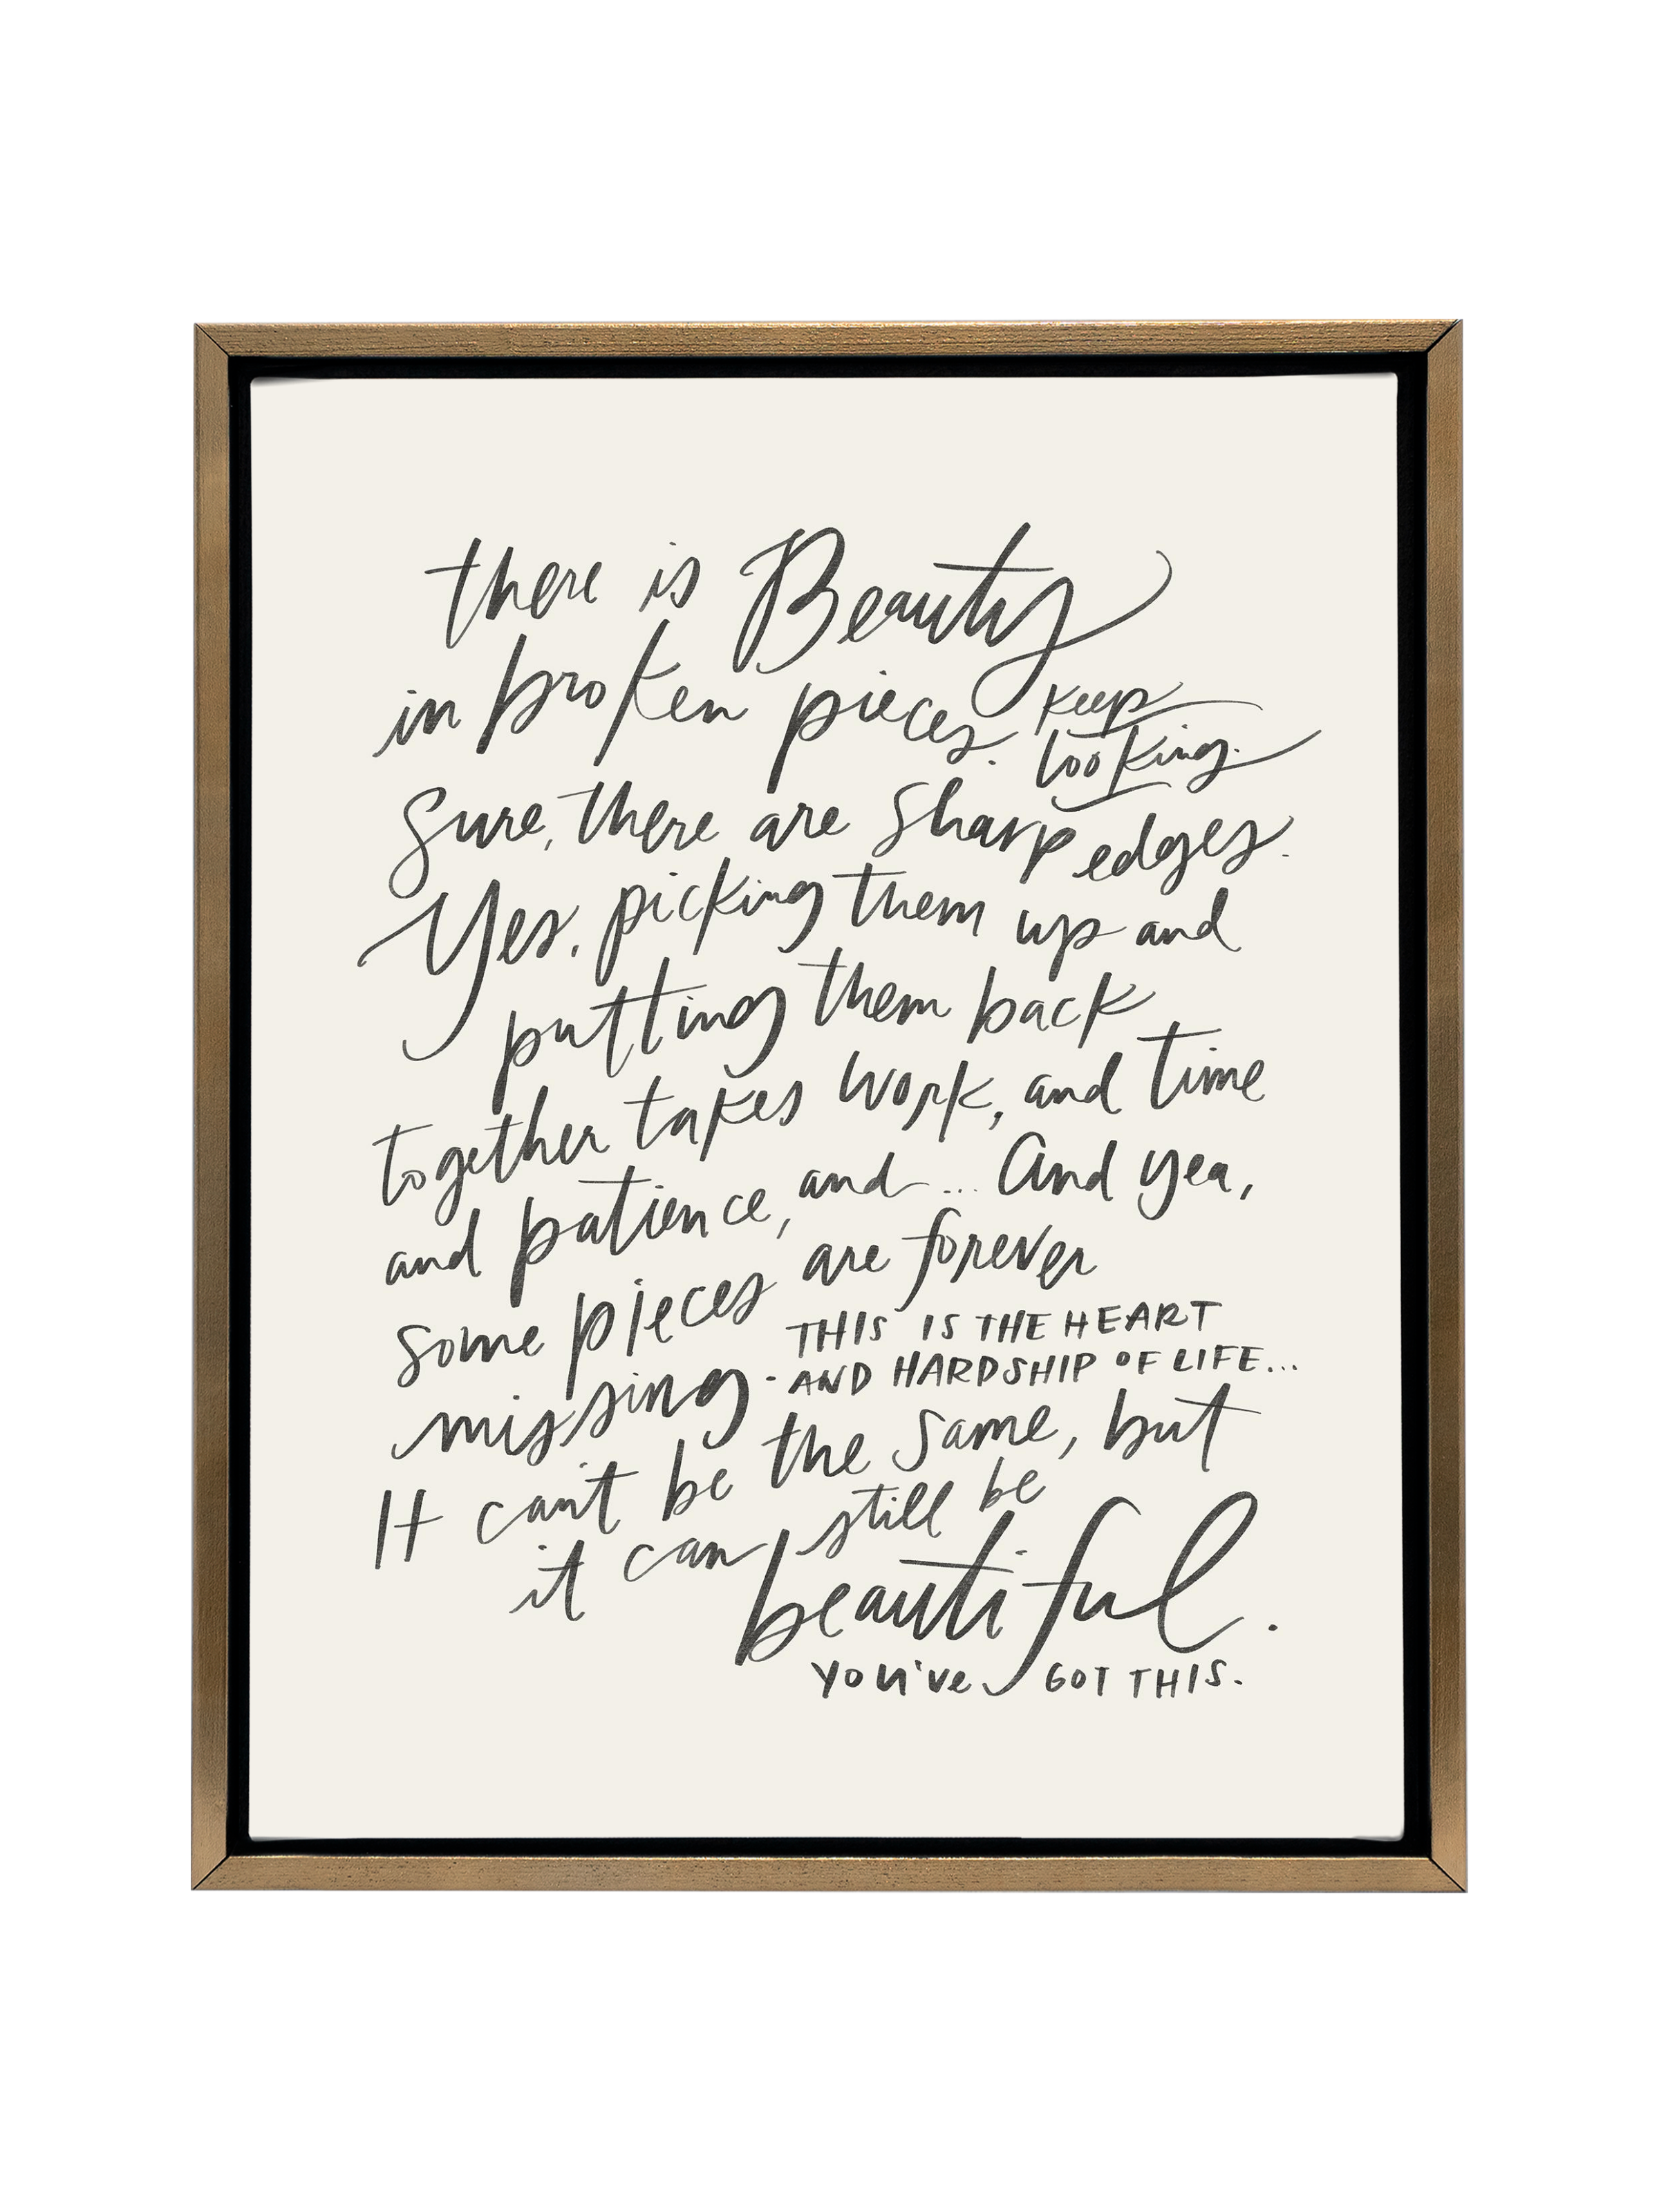 there is Beauty
in broken pieces. keep
looking.
Sure, there are sharp edges.
Yes, picking them up and
putting them back
together takes work, and time
and patience, and... And yea,
some pieces are forever
missing. THIS IS THE HEART
AND HARDSHIP OF LIFE...
It can't be the same, but
it can still be
beautiful.
You've GOT THIS.